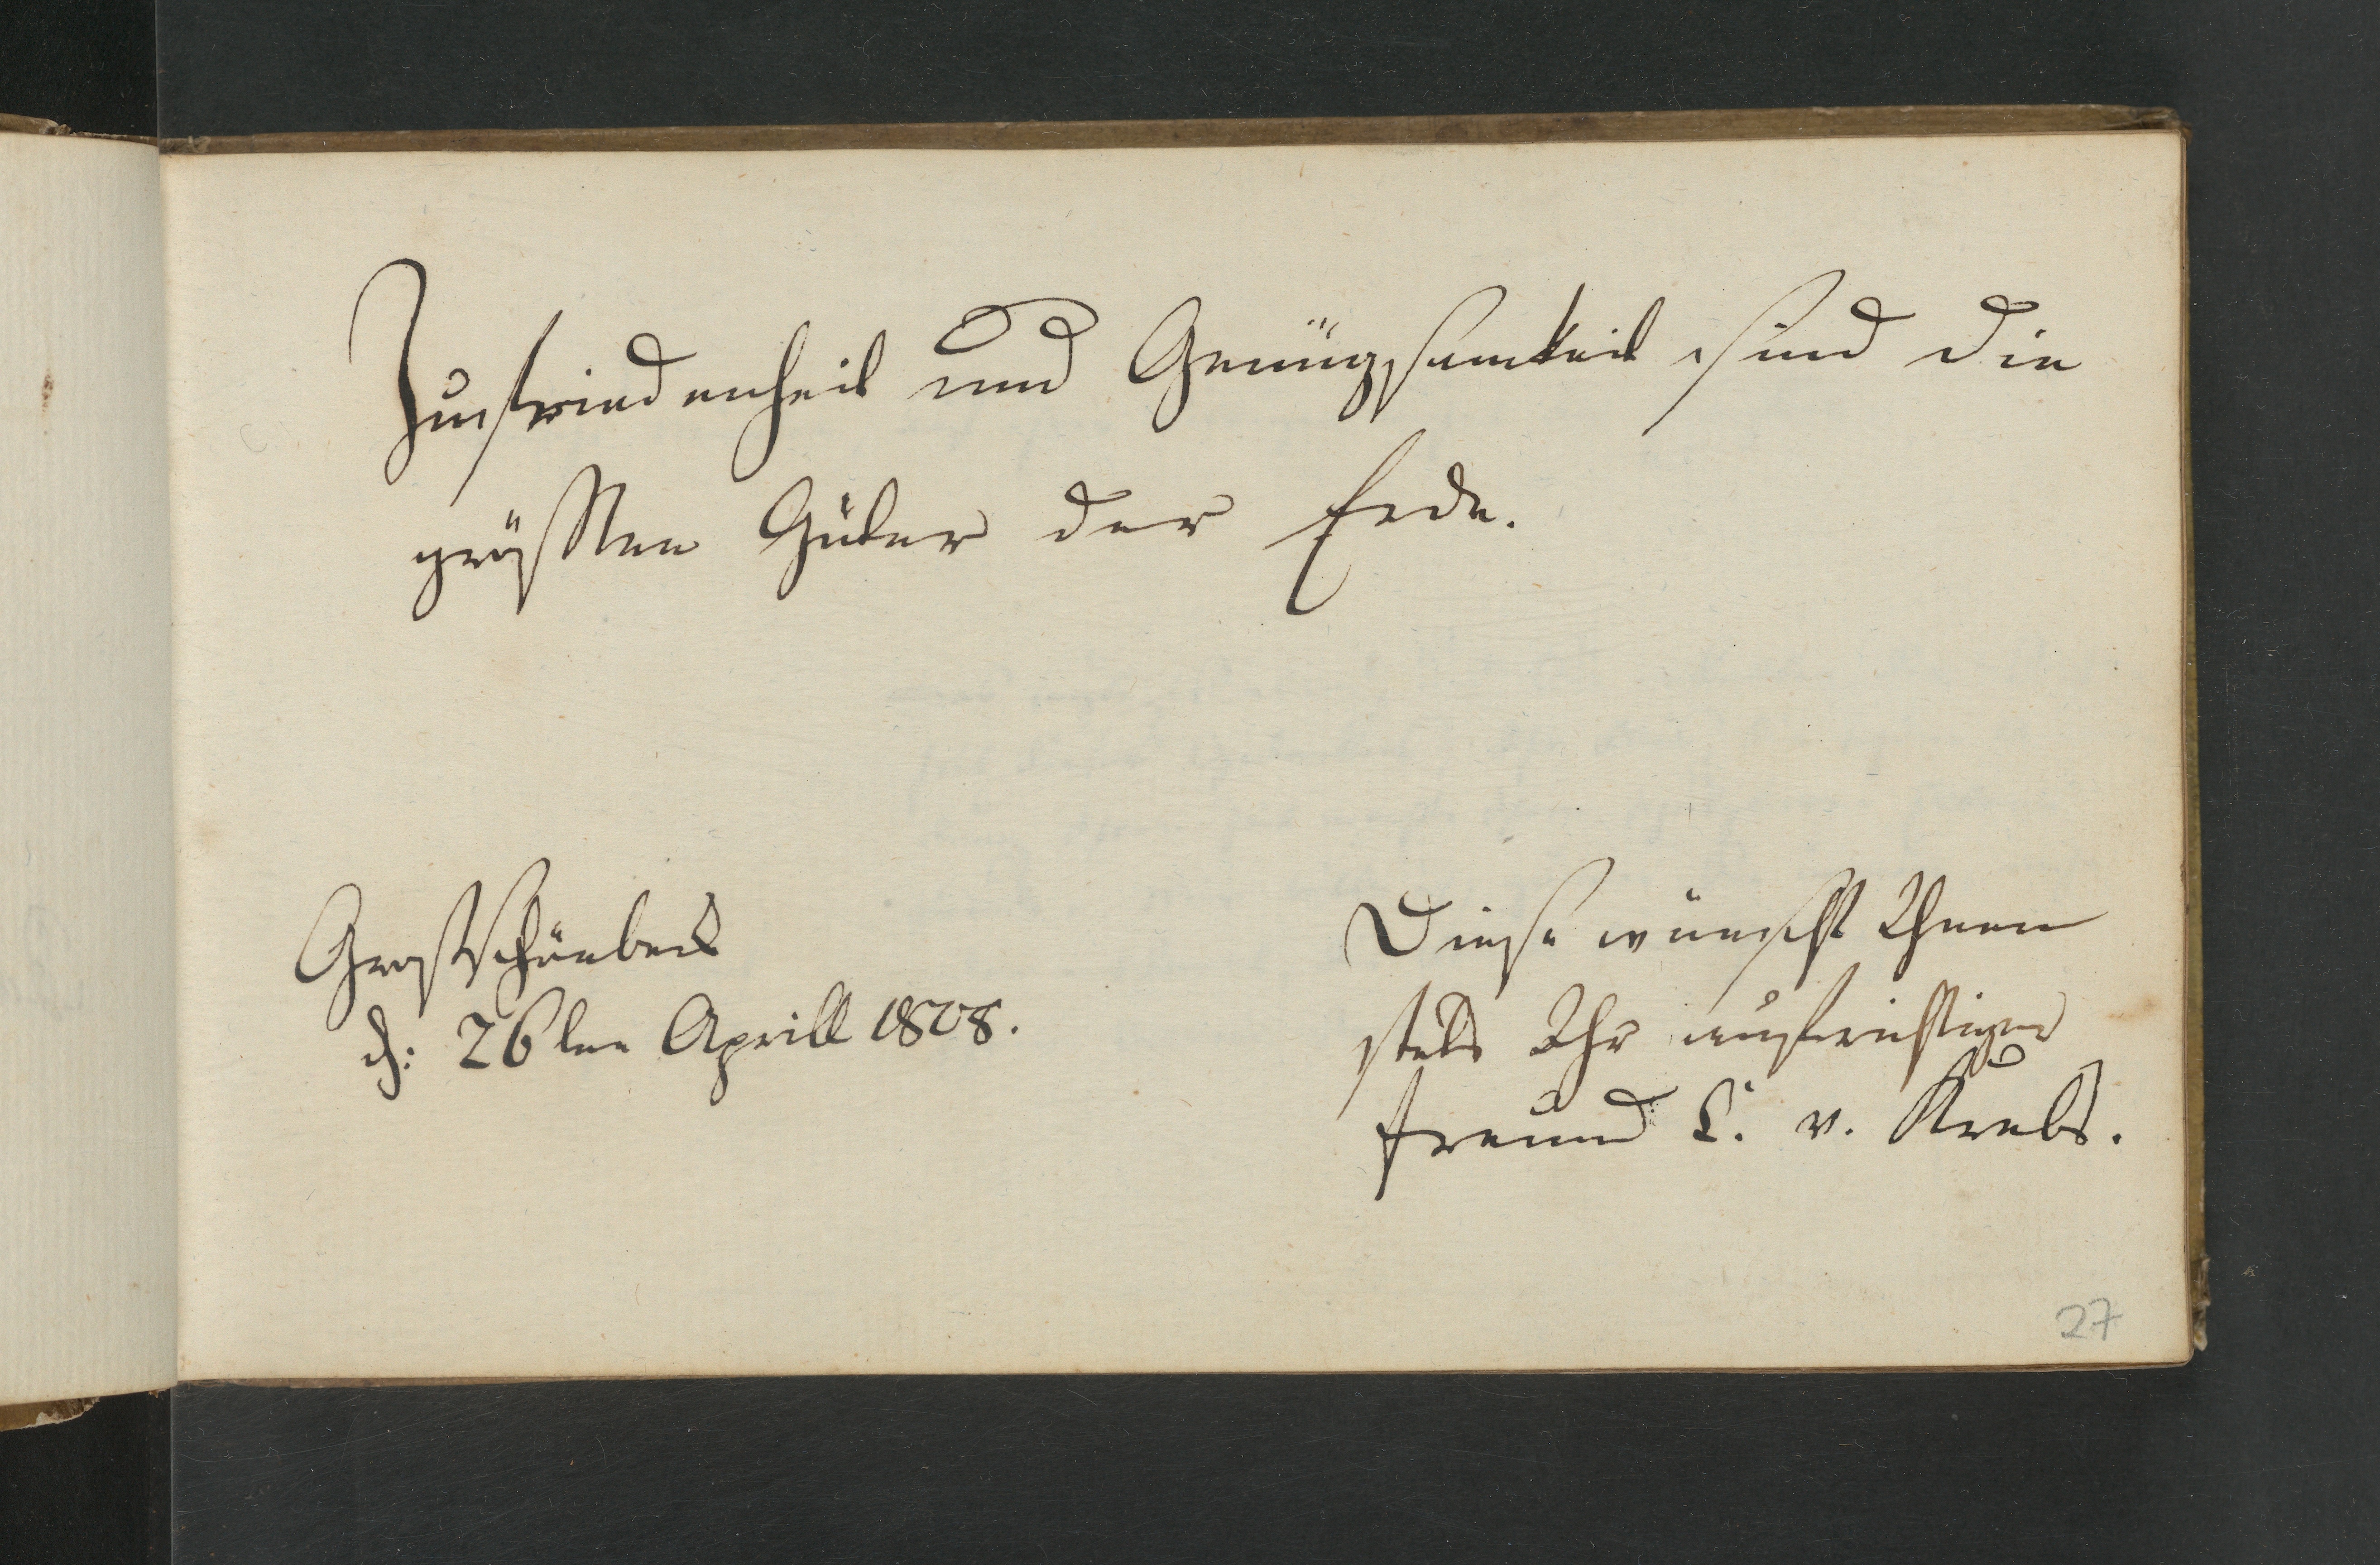 Zufriedenheit und Genügsamkeit sind die
größten Güter der Erde.
d: 26ten Aprill 1808.
Diese wünscht Ihnen
stets Ihr aufrichtiger
Freund C. v. Krebs.
27